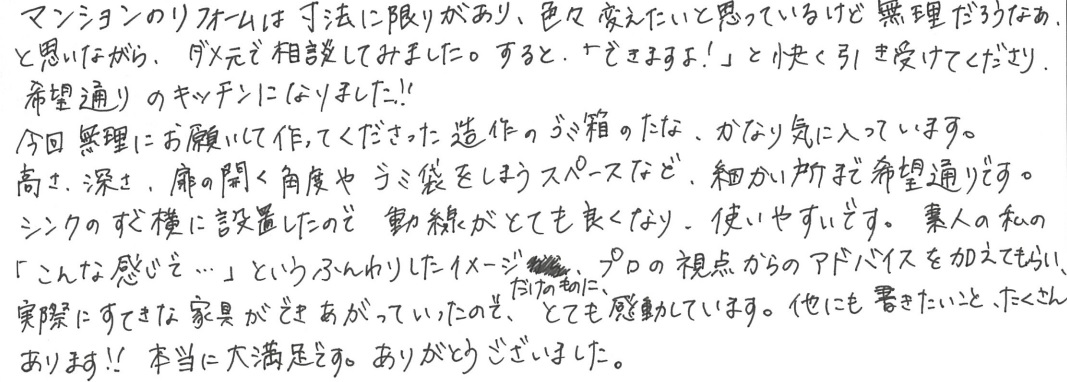 マンションのリフォームは寸法に限りがあり、色々変えたいと思っているけど無理だろうなあ、
と思いながら、ダメ元で相談してみました。すると、「できますよ!」と快く引き受けてくださり、
希望通りのキッチンになりました!!
今回無理にお願いして作ってくださった造作のゴミ箱のたな、かなり気に入っています。
高さ、深さ、扉の開く角度やゴミ袋をしまうスペースなど、細かい所まで希望通りです。
シンクのすぐ横に設置したので動線がとても良くなり、使いやすいです。素人の私の
「こんな感じで…」というふんわりしたイメージだけのものに、プロの視点からのアドバイスを加えてもらい、
実際にすてきな家具ができあがっていったので、とても感動しています。他にも書きたいこと、たくさん
あります!!本当に大満足です。ありがとうございました。